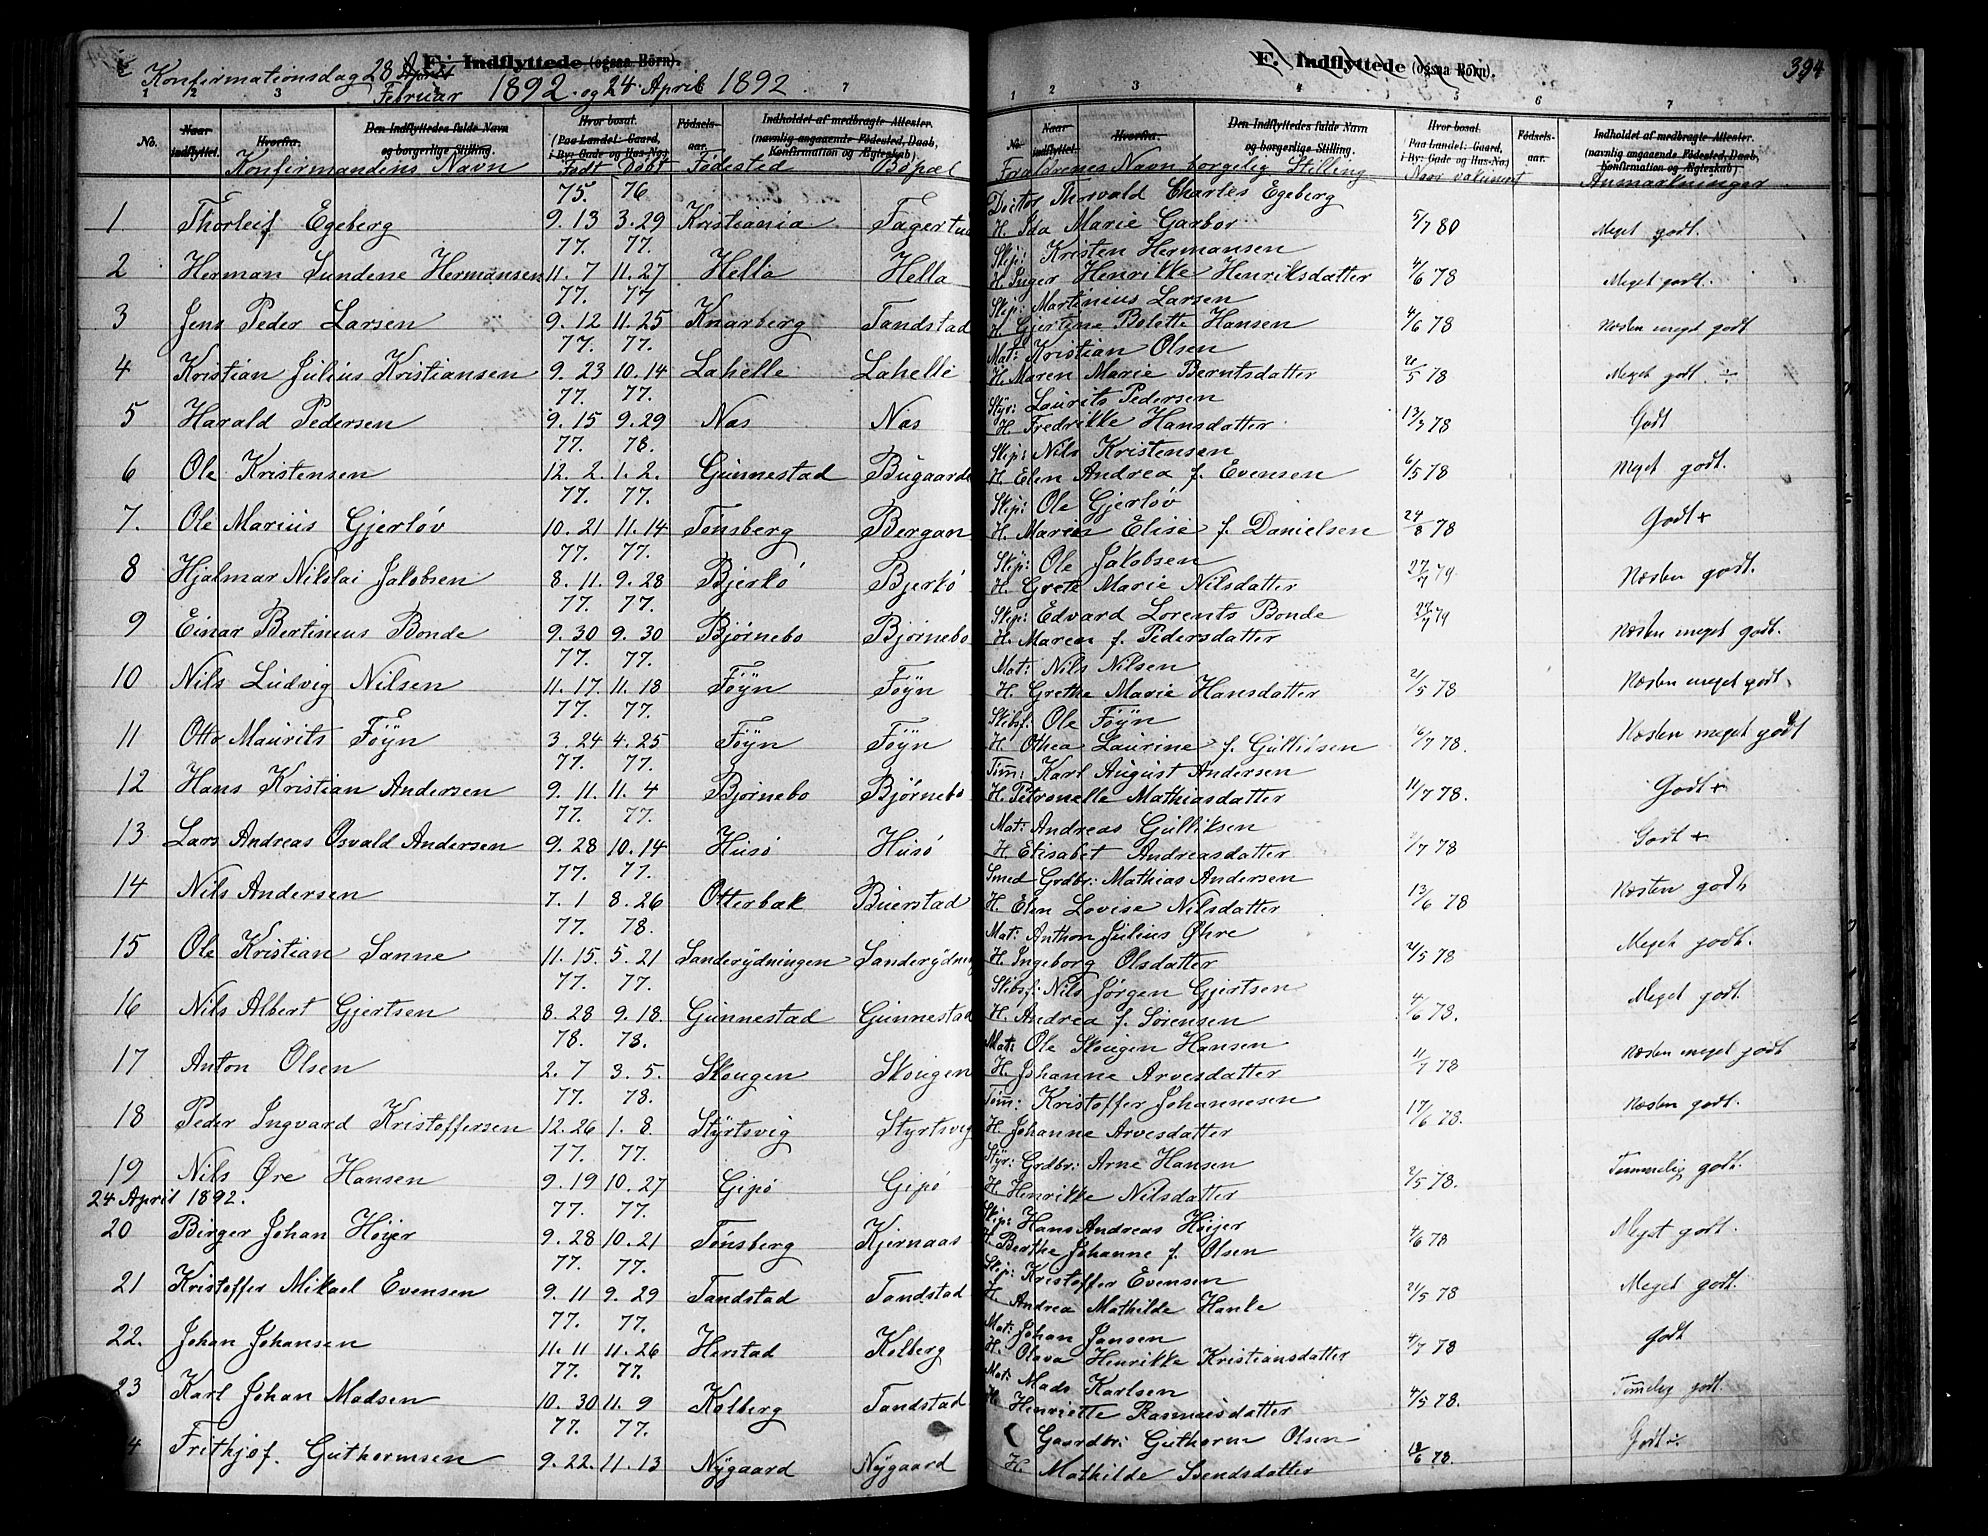 F. Indflyttede (ogsaa Börn).
Konfirmationsdag 28 April
Februar 1892 og 24 April 1892
1 2 3 7
No. Naar indflyttet. Hvorfra. Den Indflyttedes fulde Navn og borgerlige Stilling. Hvor bosat. (Paa Landet: Gaard, i By: Gade og Hus-No.) Födsels-aar. Indholdet af medbragte Attester. (navnlig angaaende Födested, Daab, Konfirmation og Ægteskab)
Konfirmandens Navn Födt Döbt Födested Bopæl
75. 76
1 Thorleif Egeberg 9. 13 3. 29 Kristiania
77. 77.
2 Herman Lundene Hermansen 11. 7 11. 27 Hella Hella
77. 77
3 Jens Peder Larsen 9. 12 11. 25 Knarberg Tandstad
77. 77.
4 Kristian Julius Kristiansen 9. 23 10. 14 Lahelle Lahelle
77. 77.
5 Harald Pedersen 9. 15 9. 29 Nas Nas
77. 78.
6 Ole Kristensen 12. 2. 1. 2. Gunnestad Bugaarde
77. 77.
7. Ole Marius Gjerløv 10. 21 11. 14 Tønsberg Bergan
77. 77.
8 Hjalmar Nikolai Jakobsen 8. 11 9. 28 Bjerkö Bjerkö
77. 77.
9 Einar Bertinius Bonde 9. 30 9. 30 Bjørnebo Bjørnebo
77. 77.
10 Nils Ludvig Nilsen 11. 17 11. 18 Föyn Föyn
77. 77.
11 Otto Maurits Föyn 3. 24 4. 25 Föyn Föyn
77. 77.
12 Hans Kristian Andersen 9. 11. 11. 4 Bjørnebo Bjørnebo
77. 77.
13 Lars Andreas Osvald Andersen 9. 28 10. 14 Husö Husö
77. 77.
14 Nils Andersen 7. 1 8. 26 Otterbæk Buerstad
77. 78.
15 Ole Kristian Sanne 11. 15. 5. 21 Sanderydningen Sanderydning
77. 77.
16 Nils Albert Gjertsen 8. 28 9. 18. Gunnestad Gunnestad
78. 78.
17 Anton Olsen 2. 7 3. 5. Skougen Skougen
77. 78.
18 Peder Ingvard Kristoffersen 12. 26 1. 8. Styrtsvig Styrtsvig
77. 77.
19 Nils Øre Hansen 9. 19 10. 27 Gipö Gipö
24 April 1892. 77. 77.
20 Birger Johan Höyer 9. 28 10. 21 Tönsberg Kjernaas
77. 77.
21 Kristoffer Mikael Evensen 9. 11 9. 29 Tandstad Tandstad
77. 77.
22. Johan Johansen 11. 11 11. 26 Herstad Kolberg
77. 77.
23 Karl Johan Madsen 10. 30 11. 9 Kolberg Tandstad
77. 77.
4 Frithjof Guthormsen 9. 22. 11. 13 Nygaard Nygaard
F. Indflyttede (ogsaa Börn). 394
1 2 3 4 5 6 7
No. Naar indflyttet. Hvorfra. Den Indflyttedes fulde Navn og borgerlige Stilling. Hvor bosat. (Paa Landet: Gaard, i By: Gade og Hus-No.) Födsels-aar. Indholdet af medbragte Attester. (navnlig angaaende Födested, Daab, Konfirmation og Ægteskab)
Forældrenes Navn borgelig Stilling Naar vakcineret Anmærkninger
Doktor Thorvald Charles Egeberg
H. Ida Marie Garbor 5/7 80 Meget godt.
Skip: Kristen Hermansen
H. Inger Henrikke Henriksdatter 4/6 78 Meget godt.
Skip: Martinius Larsen
H. Gjertine Bolette Hansen 4/6 78 Næsten meget godt
Mat: Kristian Olsen
H. Maren Marie Berntsdatter 78 Meget godt. ÷
Styr: Laurits Pedersen
H. Fredrikke Hansdatter 78 Godt
Skip: Nils Kristensen
H. Elen Andrea f. Evensen 6/5 78 Meget godt.
Skip: Ole Gjerløv
H. Maren Elise f. Danielsen 24/8 78 Godt +
Skip: Ole Jakobsen
H. Grete Marie Nilsdatter 79. Næsten godt.
Skip: Edvard Lorents Bonde
H. Maren f. Pedersdatter 79 Næsten meget godt.
Mat: Nils Nilsen
H. Grethe Marie Hansdatter 2/5 78 Næsten meget godt.
Skibsf: Ole Föyn
H. Othea Laurine f. Gulliksen 78. Næsten meget godt
Tøm: Karl August Andersen
H. Petronelle Mathiasdatter 11/7 78. Godt +
Mat: Andreas Gulliksen
H. Elisabet Andreasdatter 78 Godt +
Smed Grdbr: Mathias Andersen
H. Elen Lovise Nilsdatter 13/6 78 Næsten godt.
Mat: Anthon Julius Øhre
H. Ingeborg Olsdatter 2/5 78 Meget godt.
Skibsf: Nils Jörgen Gjertsen
H. Andrea f. Sörensen 4/6 78. Meget godt.
Mat: Ole Skougen Hansen
H. Johanne Arvesdatter 11/7 78 Næsten meget godt
Tøm: Kristoffer Johannesen
H. Johanne Arvesdatter 17/6 78. Næsten godt.
Styr: Grdbr: Arne Hansen
H. Henrikke Nilsdatter 2/5 78. Temmelig godt.
Skip: Hans Andreas Höyer
H. Berthe Johanne f. Olsen 4/6 78 Meget godt.
Skip: Kristoffer Evensen
H. Andrea Mathilde Hanke 78 Meget godt.
Mat: Johan Jansen
H. Olava Henrikke Kristiansdatter 4/7 78 Godt
Mat: Mads Karlsen
H. Henriette Rasmusdatter 4/5 78. Temelig godt.
Gaardbr: Guthorm Olsen
H. Mathilde Svendsdatter 78. Godt ÷